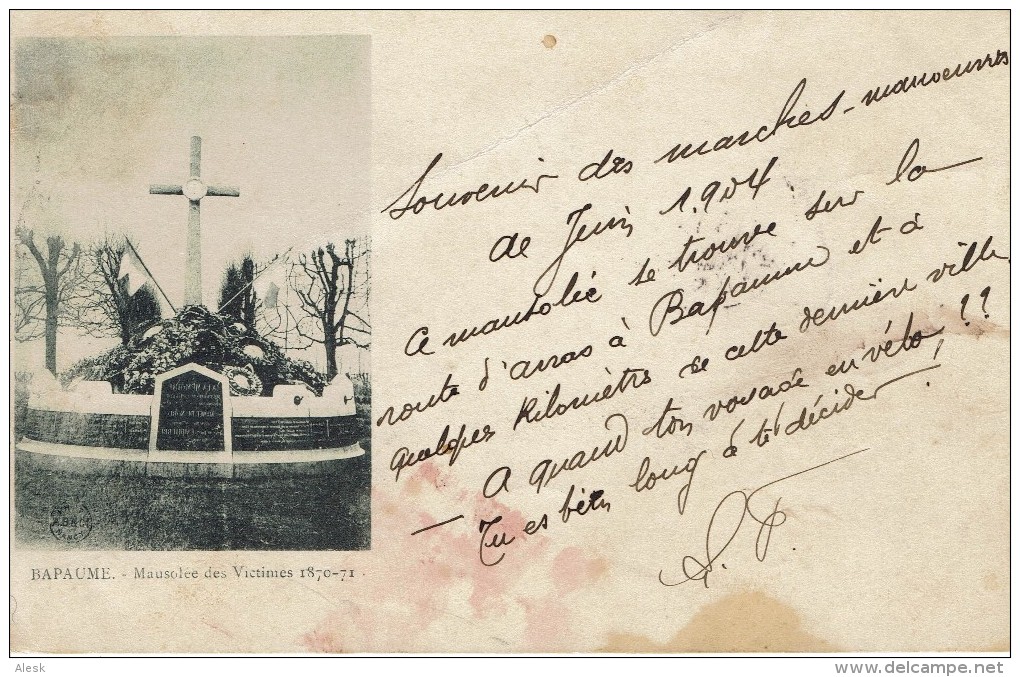 Souvenir des marches-manoeuvres
de Juin 1.904
Ce mausolée se trouve sur la
route d'arras à Bapaume et à
quelques kilomètres de cette dernière ville.
— A quand ton voyage en vélo ??
Tu es bien long à te décider !
BAPAUME. - Mausolée des Victimes 1870-71.
Alesk
www.delcampe.net